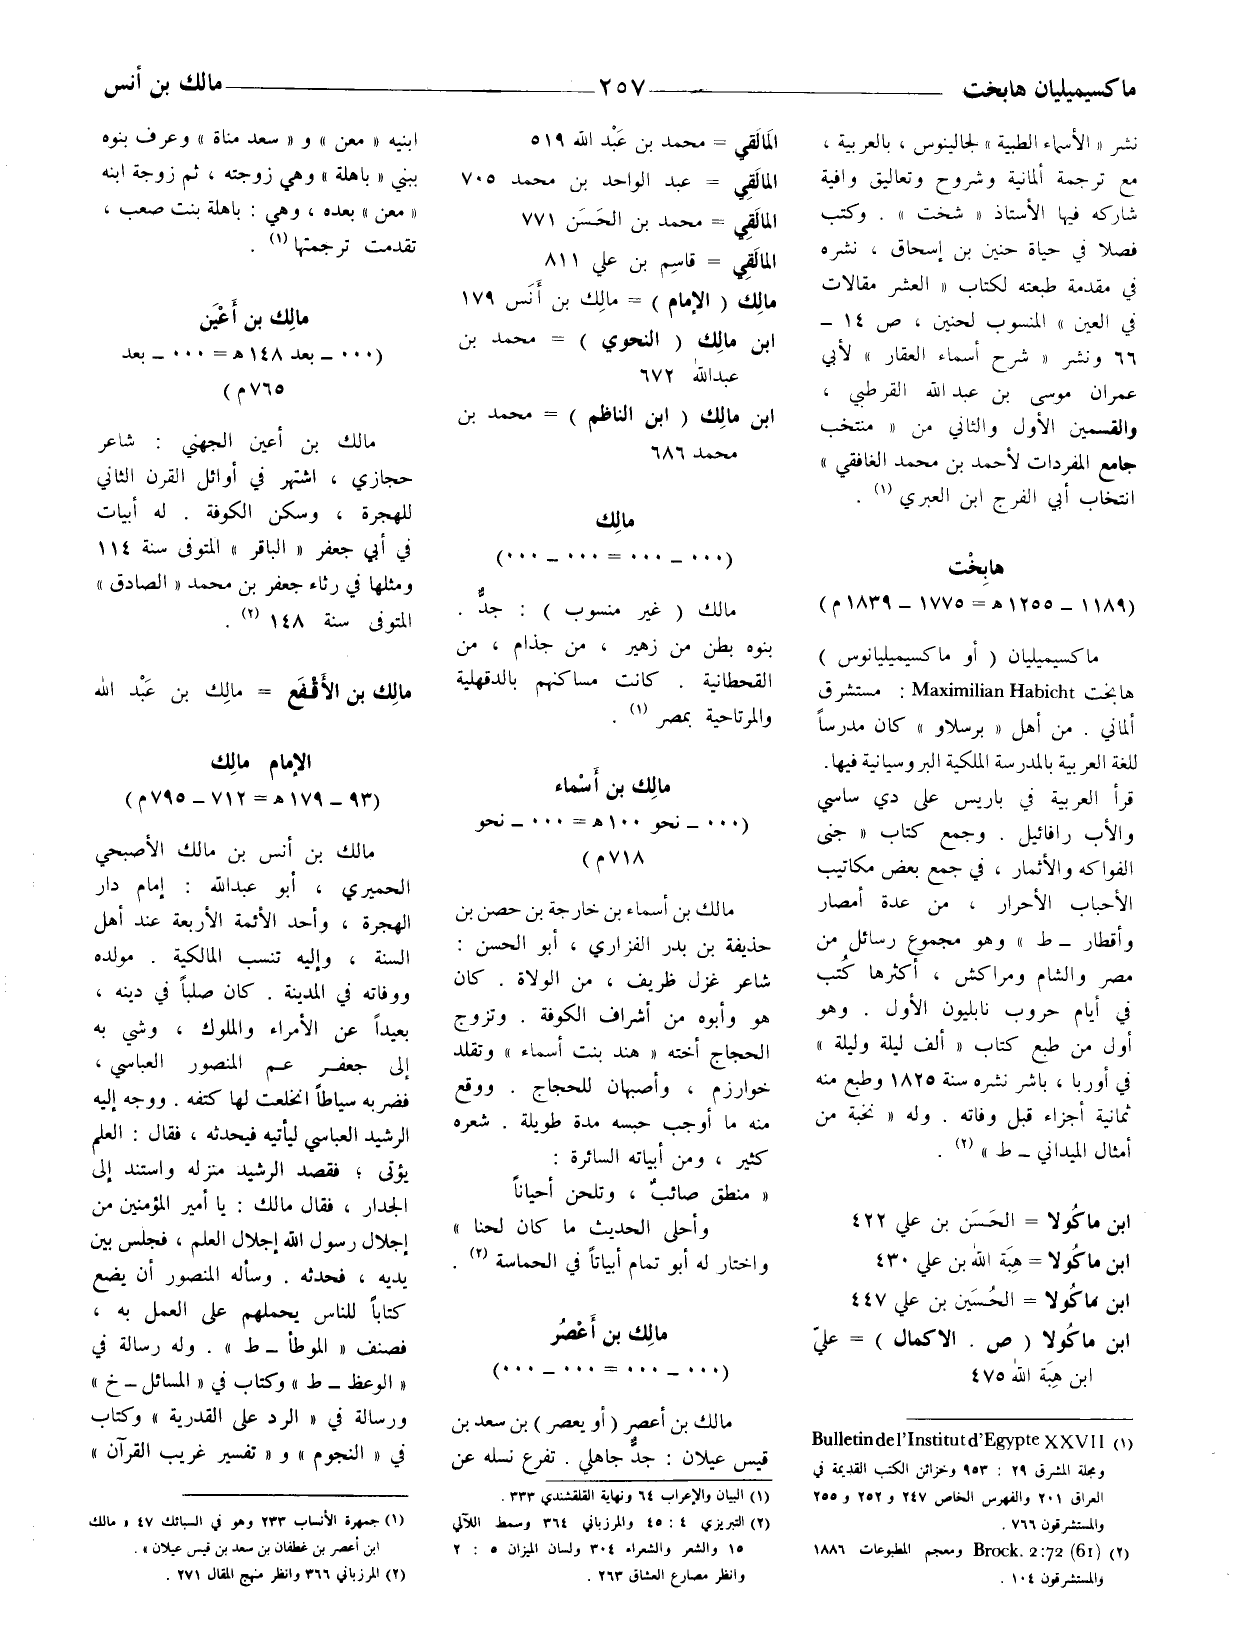 ماكسيميليان هابخت
٢٥٧
مالك بن أنس
نشر « الأسماء الطبية » لجالينوس ، بالعربية ،
مع ترجمة ألمانية وشروح وتعاليق وافية
شاركه فيها الأستاذ « شخت » . وكتب
فصلا في حياة حنين بن إسحاق ، نشره
في مقدمة طبعته لكتاب « العشر مقالات
في العين » المنسوب لحنين ، ص ١٤ ـ
٦٦ ونشر « شرح أسماء العقار » لأبي
عمران موسى بن عبد الله القرطبي ،
والقسمين الأول والثاني من « منتخب
جامع المفردات لأحمد بن محمد الغافقي »
انتخاب أبي الفرج ابن العبري (١) .
هابِخْت
(١١٨٩ ـ ١٢٥٥ هـ = ١٧٧٥ ـ ١٨٣٩ م)
ماكسيميليان ( أو ماكسيميليانوس )
هابخت Maximilian Habicht : مستشرق
ألماني . من أهل « برسلاو » كان مدرساً
للغة العربية بالمدرسة الملكية البروسيانية فيها.
قرأ العربية في باريس على دي ساسي
والأب رافائيل . وجمع كتاب « جنى
الفواكه والأثمار ، في جمع بعض مكاتيب
الأحباب الأحرار ، من عدة أمصار
وأقطار ـ ط » وهو مجموع رسائل من
مصر والشام ومراكش ، أكثرها كُتب
في أيام حروب نابليون الأول . وهو
أول من طبع كتاب « ألف ليلة وليلة »
في أوربا ، باشر نشره سنة ١٨٢٥ وطبع منه
ثمانية أجزاء قبل وفاته . وله « نخبة من
أمثال الميداني ـ ط » (٢) .
ابن ماكُولا = الحَسَن بن علي ٤٢٢
ابن ماكُولا = هِبَة الله بن علي ٤٣٠
ابن ماكُولا = الحُسَين بن علي ٤٤٧
ابن ماكُولا ( ص . الاكمال ) = عليّ
ابن هِبَة الله ٤٧٥
(١) Bulletin de l'Institut d'Egypte XXVII
ومجلة المشرق ٢٩ : ٩٥٣ وخزائن الكتب القديمة في
العراق ٢٠١ والفهرس الخاص ٢٤٧ و ٢٥٢ و ٢٥٥
والمستشرقون ٧٦٦ .
(٢) Brock. 2:72 (61) ومعجم المطبوعات ١٨٨٦
والمستشرقون ١٠٤ .
المَالَقي = محمد بن عَبْد الله ٥١٩
المالَقِي = عبد الواحد بن محمد ٧٠٥
المالَقِي = محمد بن الحَسَن ٧٧١
المالَقِي = قاسِم بن علي ٨١١
مالِك ( الإمام ) = مالِك بن أَنَس ١٧٩
ابن مالِك ( النحوي ) = محمد بن
عبدالله ٦٧٢
ابن مالِك ( ابن الناظم ) = محمد بن
محمد ٦٨٦
مالِك
(٠٠٠ ـ ٠٠٠ = ٠٠٠ ـ ٠٠٠)
مالك ( غير منسوب ) : جدٌّ .
بنوه بطن من زهير ، من جذام ، من
القحطانية . كانت مساكنهم بالدقهلية
والمرتاحية بمصر (١) .
مالِك بن أَسْماء
(٠٠٠ ـ نحو ١٠٠ هـ = ٠٠٠ ـ نحو
٧١٨ م)
مالك بن أسماء بن خارجة بن حصن بن
حذيفة بن بدر الفزاري ، أبو الحسن :
شاعر غزل ظريف ، من الولاة . كان
هو وأبوه من أشراف الكوفة . وتزوج
الحجاج أخته « هند بنت أسماء » وتقلد
خوارزم ، وأصبهان للحجاج . ووقع
منه ما أوجب حبسه مدة طويلة . شعره
كثير ، ومن أبياته السائرة :
« منطق صائبٌ ، وتلحن أحياناً
وأحلى الحديث ما كان لحنا »
واختار له أبو تمام أبياتاً في الحماسة (٢) .
مالِك بن أَعْصُر
(٠٠٠ ـ ٠٠٠ = ٠٠٠ ـ ٠٠٠)
مالك بن أعصر ( أو يعصر ) بن سعد بن
قيس عيلان : جدٌّ جاهلي . تفرع نسله عن
(١) البيان والإعراب ٦٤ ونهاية القلقشندي ٣٣٣ .
(٢) التبريزي ٤ : ٤٥ والمرزباني ٣٦٤ وسمط اللآلي
١٥ والشعر والشعراء ٣٠٤ ولسان الميزان ٥ : ٢
وانظر مصارع العشاق ٢٦٣ .
ابنيه « معن » و « سعد مناة » وعرف بنوه
ببني « باهلة » وهي زوجته ، ثم زوجة ابنه
« معن » بعده ، وهي : باهلة بنت صعب ،
تقدمت ترجمتها (١) .
مالِك بن أَعْيَن
(٠٠٠ ـ بعد ١٤٨ هـ = ٠٠٠ ـ بعد
٧٦٥ م)
مالك بن أعين الجهني : شاعر
حجازي ، اشتهر في أوائل القرن الثاني
للهجرة ، وسكن الكوفة . له أبيات
في أبي جعفر « الباقر » المتوفى سنة ١١٤
ومثلها في رثاء جعفر بن محمد « الصادق »
المتوفى سنة ١٤٨ (٢) .
مالِك بن الأَقْفَع = مالِك بن عَبْد الله
الإمام مالِك
(٩٣ ـ ١٧٩ هـ = ٧١٢ ـ ٧٩٥ م)
مالك بن أنس بن مالك الأصبحي
الحميري ، أبو عبدالله : إمام دار
الهجرة ، وأحد الأئمة الأربعة عند أهل
السنة ، وإليه تنسب المالكية . مولده
ووفاته في المدينة . كان صلباً في دينه ،
بعيداً عن الأمراء والملوك ، وشي به
إلى جعفر عم المنصور العباسي ،
فضربه سياطاً انخلعت لها كتفه . ووجه إليه
الرشيد العباسي ليأتيه فيحدثه ، فقال : العلم
يؤتى ؛ فقصد الرشيد منزله واستند إلى
الجدار ، فقال مالك : يا أمير المؤمنين من
إجلال رسول الله إجلال العلم ، فجلس بين
يديه ، فحدثه . وسأله المنصور أن يضع
كتاباً للناس يحملهم على العمل به ،
فصنف « الموطأ ـ ط » . وله رسالة في
« الوعظ ـ ط » وكتاب في « المسائل ـ خ »
ورسالة في « الرد على القدرية » وكتاب
في « النجوم » و « تفسير غريب القرآن »
(١) جمهرة الأنساب ٢٣٣ وهو في السبائك ٤٧ « مالك
ابن أعصر بن غطفان بن سعد بن قيس عيلان » .
(٢) المرزباني ٣٦٦ وانظر منهج المقال ٢٧١ .